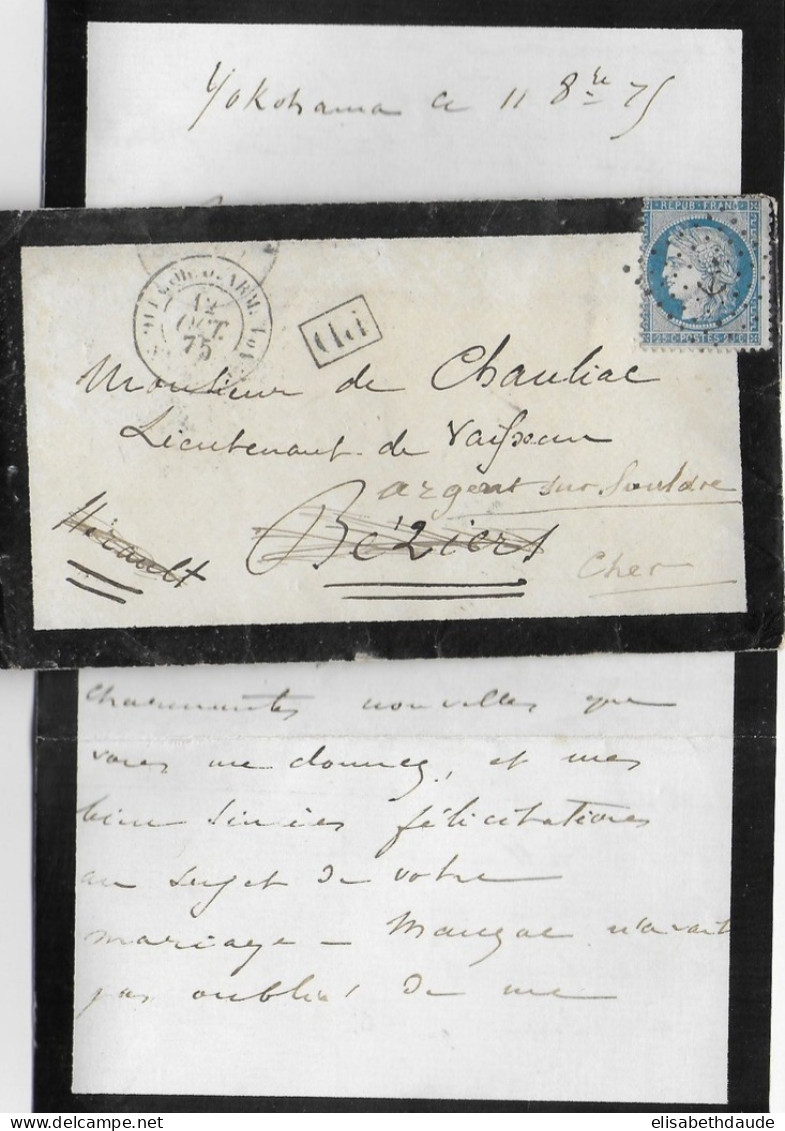 Yokohama ce 11 8bre 75
REPUB. FRANC.
25 C. POSTES 25 C.
12
OCT.
75
Monsieur de Chauliac
Lieutenant de Vaisseau
argent sur Sauldre
Hérault
Béziers
Cher
charmantes nouvelles que
vous me donnez, et mes
bien sincères félicitations
au sujet de votre
mariage — n'avait
pas oublié de me
elisabethdaude